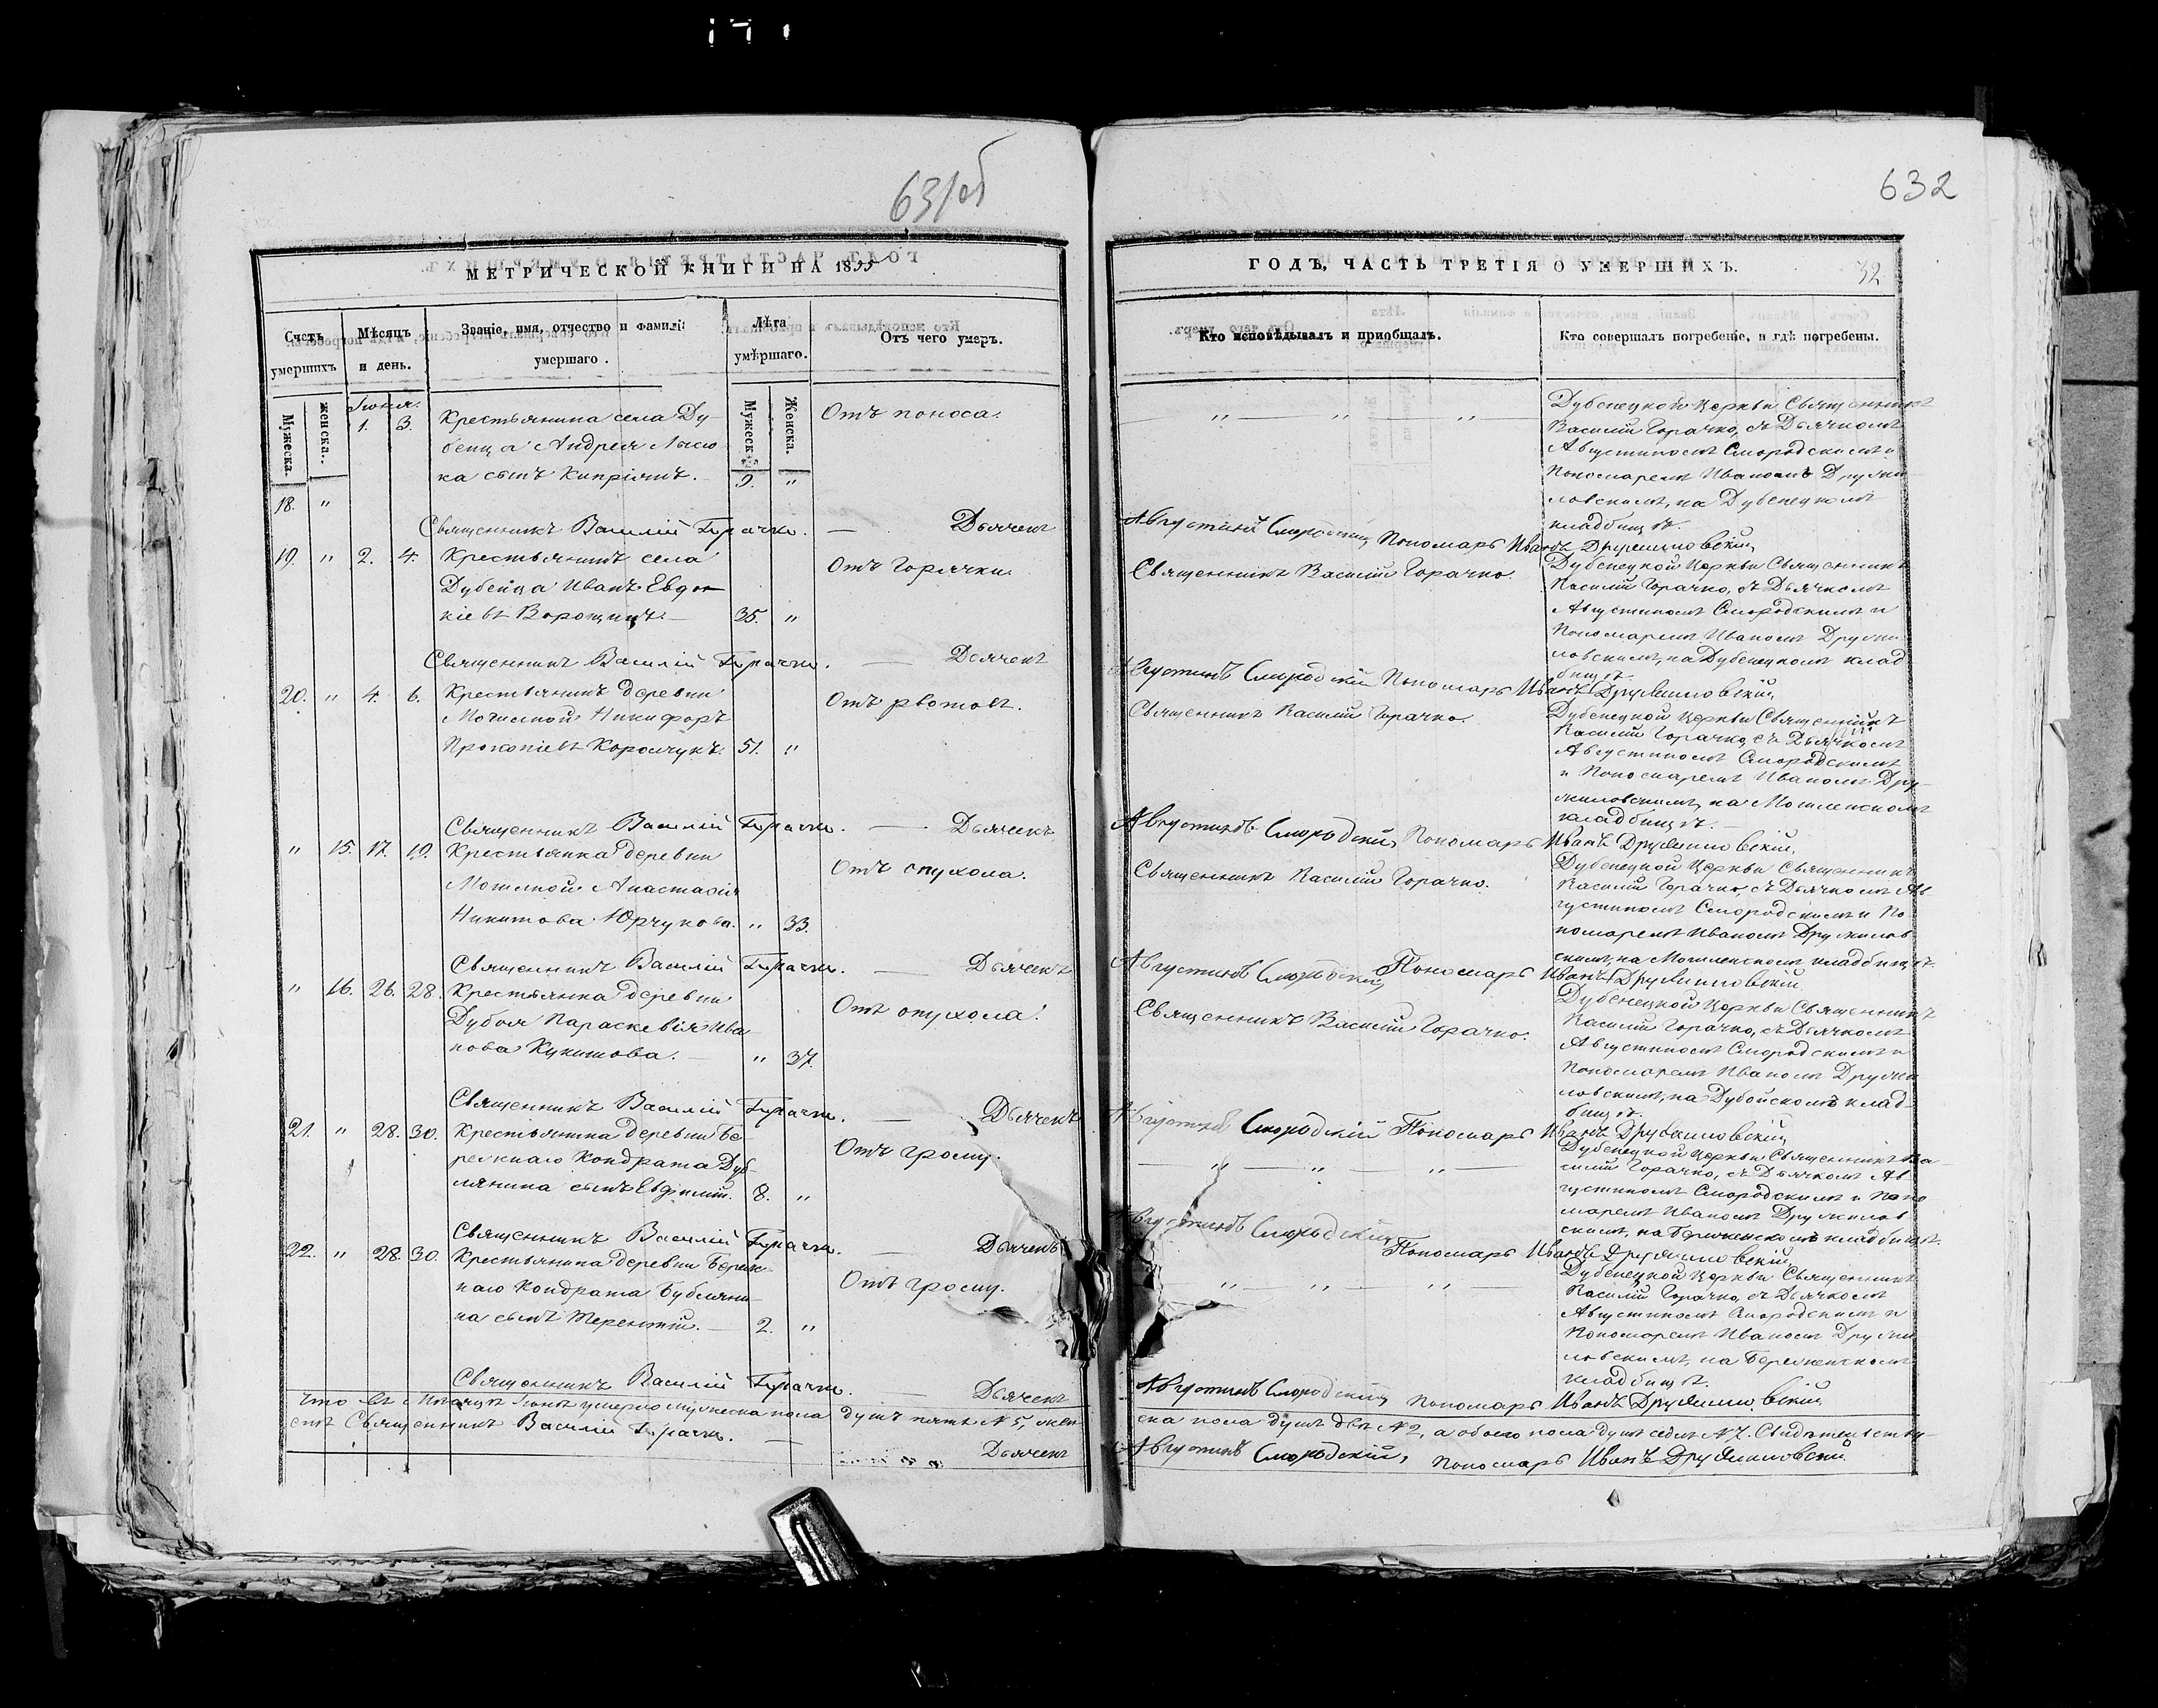 631об
632
МЕТРИЧЕСКОЙ КНИГИ НА 1855
ГОДЪ, ЧАСТЬ ТРЕТІЯ О УМЕРШИХЪ.
32
Счетъ умершихъ
Мѣсяцъ и день.
Званіе, имя, отчество и фамилі умершаго.
Лѣта умѣршаго.
Отъ чего умеръ.
Кто исповѣдывалъ и приобщалъ.
Кто совершалъ погребеніе, и гдѣ погребены.
Мужеска.
женска.
Мужеск
Женска.
Іюня.
18. " 1. 3.
Крестьянина села Ду-
бенца Андрея
ка сынъ Кипріянъ. 9. "
Отъ поноса.
" " "
Дубенецкой Церкви Священникъ
Василій Горачко, съ Дьячкомъ
Августиномъ Смородскимъ и
Пономаремъ Иваномъ Дружи
ловскимъ, на Дубенецкомъ
кладбищѣ.
Священникъ Василій Горачко. — Дьячекъ Августинъ Смородскій Пономарь Иванъ Дружиловскій
19. " 2. 4.
Крестьянинъ села
Дубенца Иванъ Евдо
кіевъ 35. "
Отъ горячки.
Священникъ Василій Горачко.
Дубенецкой Церкви Священникъ
Василій Горачко, съ Дьячкомъ
Августиномъ Смородскимъ и
Пономаремъ Иваномъ Дружи
ловскимъ, на Дубенецкомъ клад
бищѣ.
Священникъ Василій Горачко. — Дьячекъ Августинъ Смородскій Пономарь Иванъ Дружиловскій
20. " 4. 6.
Крестьянинъ деревни
Могилной Никифоръ
Прокопіевъ Коромчукъ. 51. "
Отъ рвотовъ.
Священникъ Василій Горачко.
Дубенецкой Церкви Священникъ
Василій Горачко, съ Дьячкомъ
Августиномъ Смородскимъ
и Пономаремъ Иваномъ Дру-
жиловскимъ, на
кладбищѣ.
Священникъ Василій Горачко. — Дьячекъ Августинъ Смородскій Пономарь Иванъ Дружиловскій.
" 15. 17. 19.
Крестьянка деревни
Могилной Анастасія
Никитова Юрчукова. " 33.
Отъ опухола.
Священникъ Василій Горачко.
Дубенецкой Церкви Священникъ
Василій Горачко, съ Дьячкомъ Ав
густиномъ Смородскимъ и По
номаремъ Иваномъ Дружилов
скимъ, на кладбищѣ.
Священникъ Василій Горачко. — Дьячекъ Августинъ Смородскій, Пономарь Иванъ Дружиловскій
" 16. 26. 28.
Крестьянка деревни
Дубоя Параскевія Ива-
нова Кукитова. " 37.
Отъ опухола.
Священникъ Василій Горачко.
Дубенецкой Церкви Священникъ
Василій Горачко, съ Дьячкомъ
Августиномъ Смородскимъ и
Пономаремъ Иваномъ Дружи
ловскимъ, на Дубойскомъ клад-
бищѣ.
Священникъ Василій Горачко. — Дьячекъ Августинъ Смородскій Пономарь Иванъ Дружиловскій
21. " 28. 30.
Крестьянина деревни Бе-
режнаго Кондрата
сынъ Евфимій. 8. "
Отъ грому.
" " "
Дубенецкой Церкви Священникъ Ва-
силій Горачко, съ Дьячкомъ Ав
густиномъ Смородскимъ и Поно
маремъ Иваномъ Дружилов
скимъ, на кладбищѣ.
Священникъ Василій Горачко. — Дьячекъ Августинъ Смородскій Пономарь Иванъ Дружиловскій
22. " 28. 30.
Крестьянина деревни Береж-
наго Кондрата Бубляни-
на сынъ Терентій. 2. "
Отъ грому.
" " "
Дубенецкой Церкви Священникъ
Василій Горачко, съ Дьячкомъ
Августиномъ Смородскимъ и
Пономаремъ Иваномъ Дружи
ловскимъ, на
кладбищѣ.
Священникъ Василій Горачко. Дьячекъ Августинъ Смородскій Пономарь Иванъ Дружиловскій
Что въ Мѣсяцѣ Іюнѣ умерло мужеска пола душъ пять № 5, жен
ска пола душъ двѣ № 2, а обоего пола душъ седмь № 7. Свидѣтельству-
емъ Священникъ Василій Горачко. — Дьячекъ Августинъ Смородскій, Пономарь Иванъ Дружиловскій